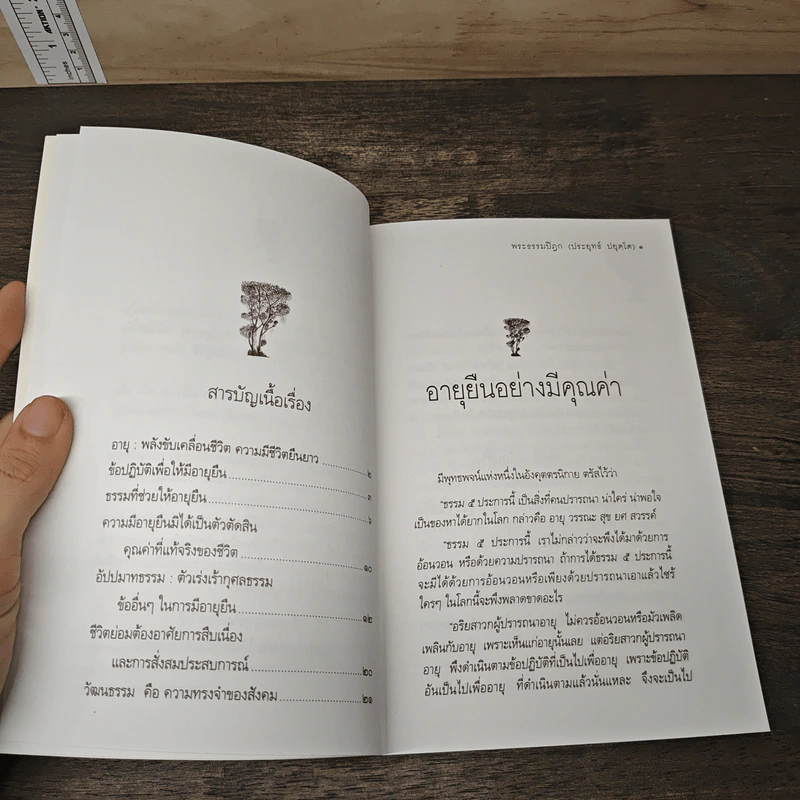 สารบัญเนื้อเรื่อง
อายุ : พลังขับเคลื่อนชีวิต ความมีชีวิตยืนยาว ........ ๒
ข้อปฏิบัติเพื่อให้มีอายุยืน ........ ๓
ธรรมที่ช่วยให้อายุยืน ........ ๖
ความมีอายุยืนมิได้เป็นตัวตัดสิน
คุณค่าที่แท้จริงของชีวิต ........ ๑๐
อัปปมาทธรรม : ตัวเร่งเร้ากุศลธรรม
ข้ออื่นๆ ในการมีอายุยืน ........ ๑๒
ชีวิตย่อมต้องอาศัยการสืบเนื่อง
และการสั่งสมประสบการณ์ ........ ๒๐
วัฒนธรรม คือ ความทรงจำของสังคม ........ ๒๑
พระธรรมปิฎก (ประยุทธ์ ปยุตฺโต) ๑
อายุยืนอย่างมีคุณค่า
มีพุทธพจน์แห่งหนึ่งในอังคุตตรนิกาย ตรัสไว้ว่า
"ธรรม ๕ ประการนี้ เป็นสิ่งที่คนปรารถนา น่าใคร่ น่าพอใจ
เป็นของหาได้ยากในโลก กล่าวคือ อายุ วรรณะ สุข ยศ สวรรค์
"ธรรม ๕ ประการนี้ เราไม่กล่าวว่าจะพึงได้มาด้วยการ
อ้อนวอน หรือด้วยความปรารถนา ถ้าการได้ธรรม ๕ ประการนี้
จะมีได้ด้วยการอ้อนวอนหรือเพียงด้วยปรารถนาเอาแล้วไซร้
ใครๆ ในโลกนี้จะพึงพลาดขาดอะไร
"อริยสาวกผู้ปรารถนาอายุ ไม่ควรอ้อนวอนหรือมัวเพลิด
เพลินกับอายุ เพราะเห็นแก่อายุนั้นเลย แต่อริยสาวกผู้ปรารถนา
อายุ พึงดำเนินตามข้อปฏิบัติที่เป็นไปเพื่ออายุ เพราะข้อปฏิบัติ
อันเป็นไปเพื่ออายุ ที่ดำเนินตามแล้วนั่นแหละ จึงจะเป็นไป
MARTION
INCHES
1
2
3